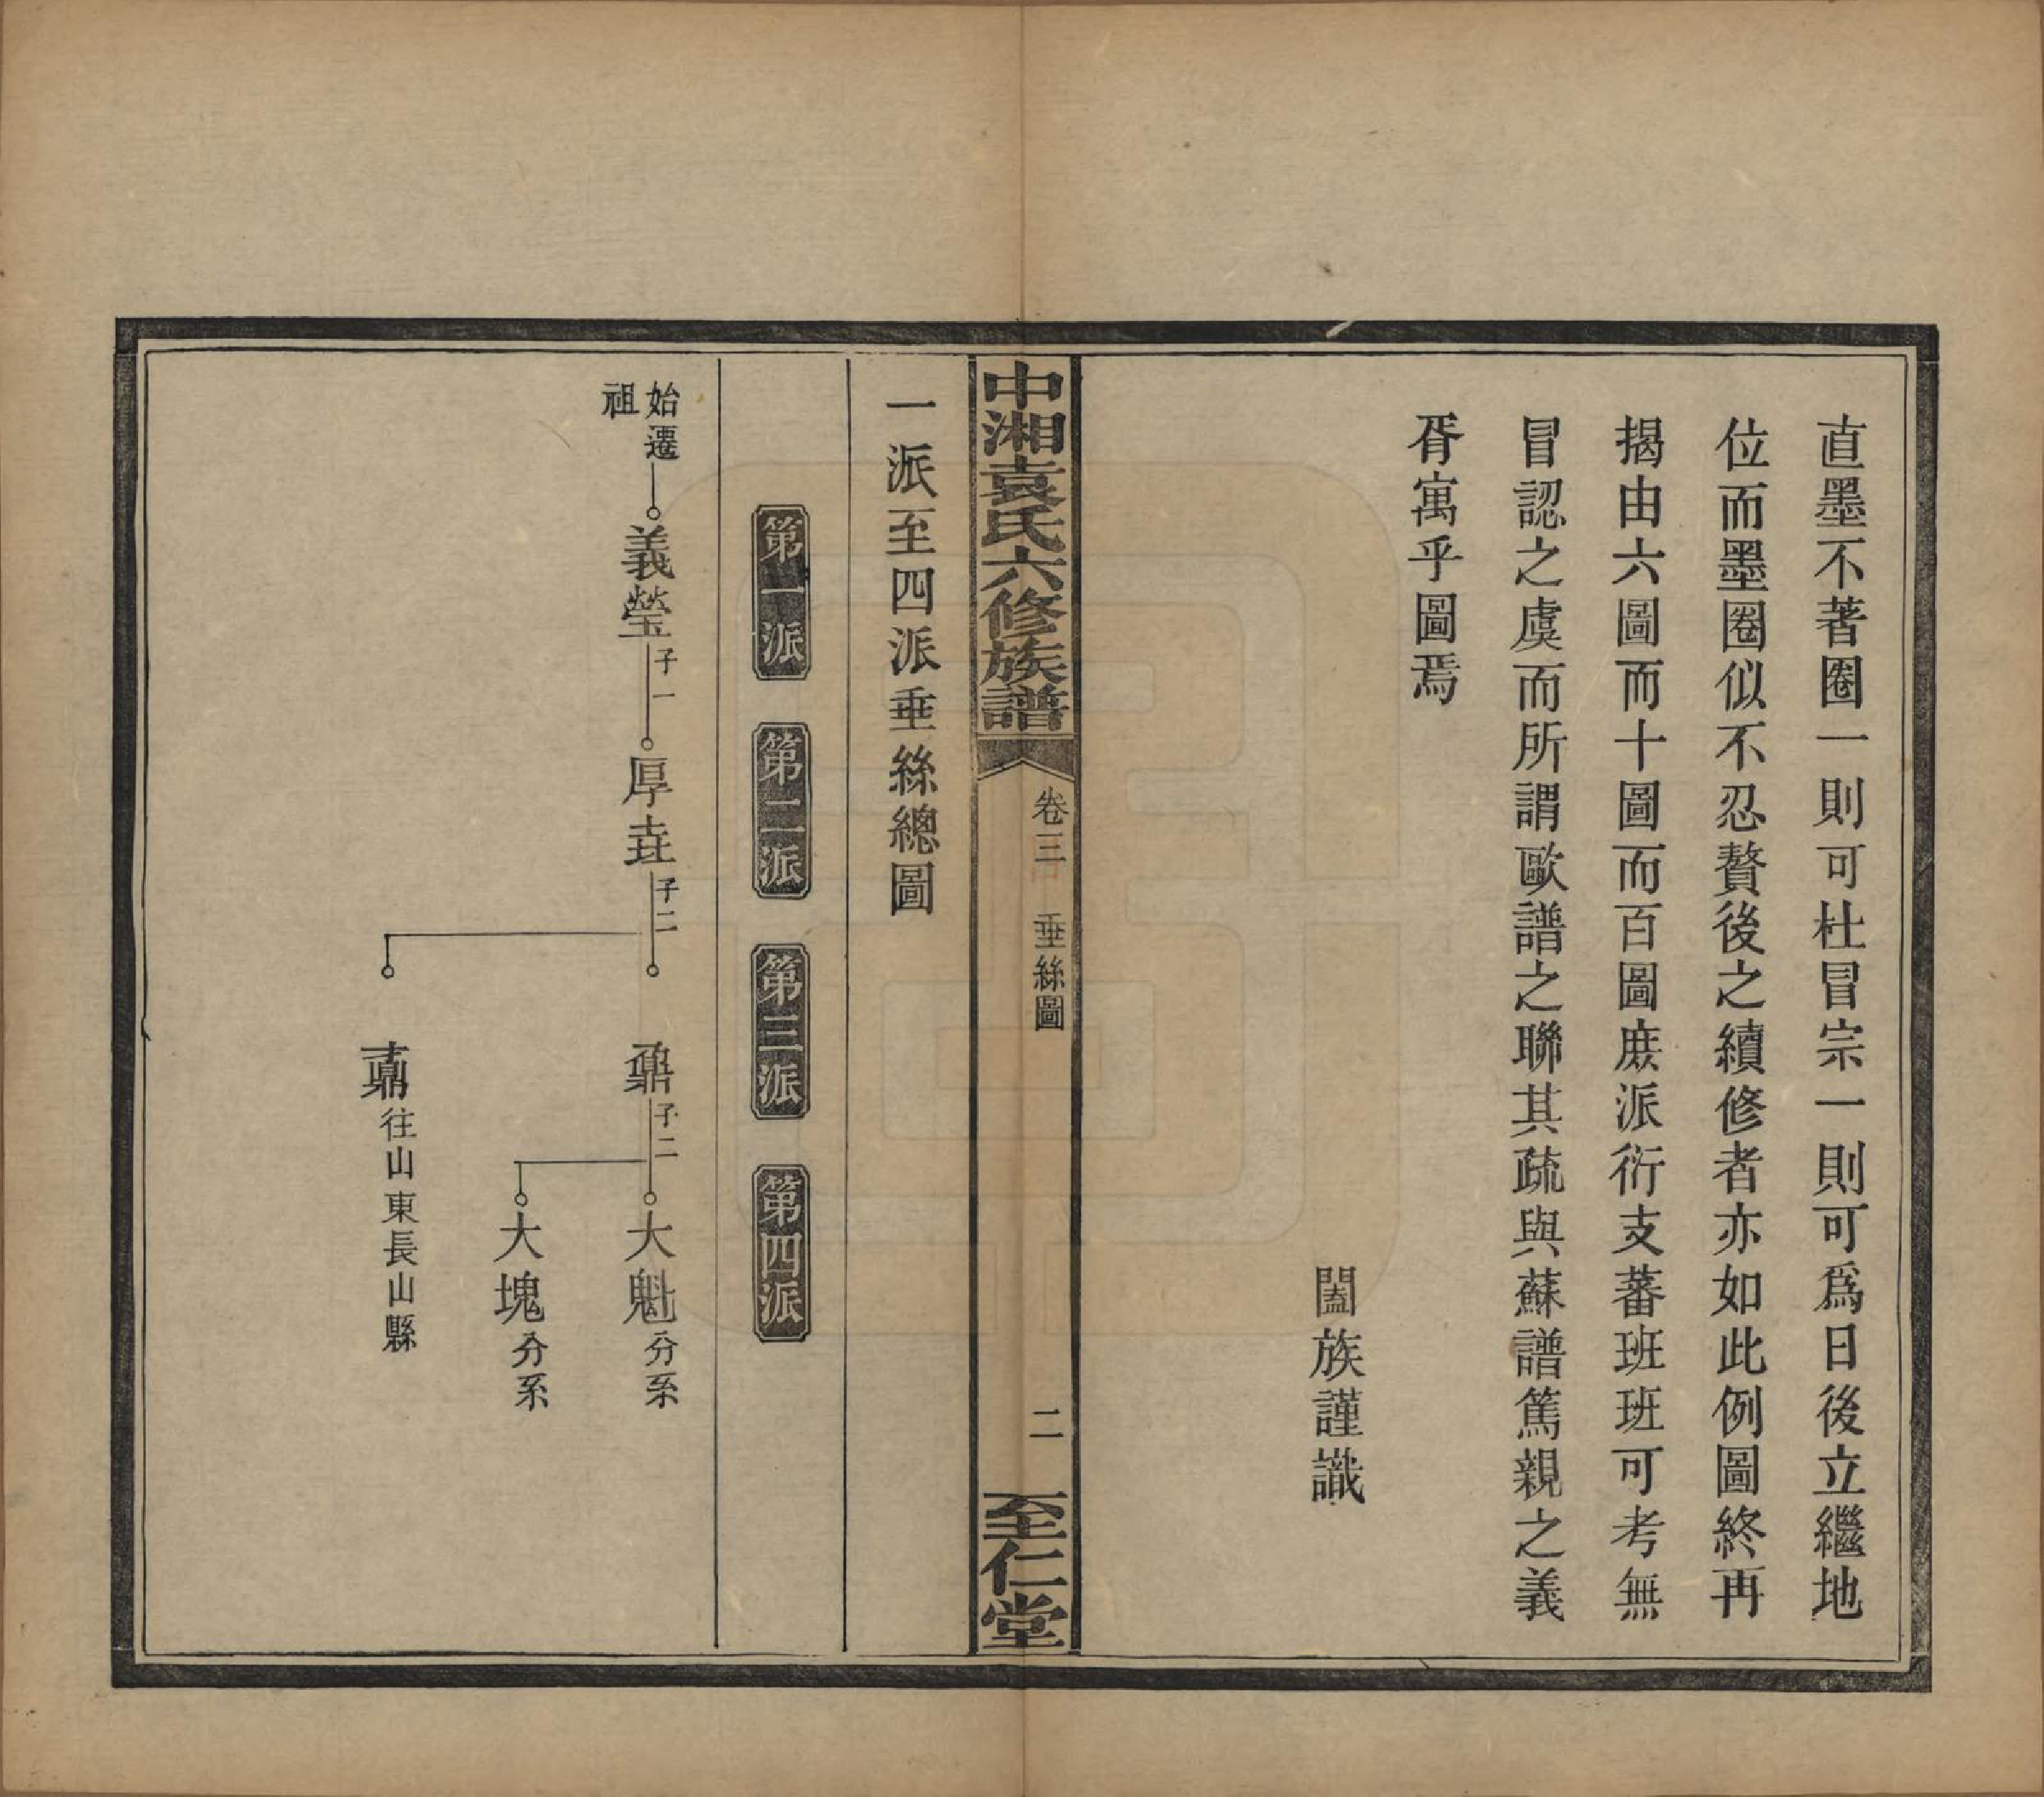 直墨不著圈一則可杜冒宗一則可爲日後立繼地
位而墨圈似不忍贅後之續修者亦如此例圖終再
揭由六圖而十圖而百圖庶派衍支蕃班班可考無
冒認之虞而所謂歐譜之聯其疏與蘇譜篤親之義
胥寓乎圖焉
闔族謹識
中湘袁氏六修族譜
卷三 垂絲圖
二
至仁堂
一派至四派垂絲總圖
第一派 第二派 第三派 第四派
始遷祖 義瑩 子一 厚垚 子二 子二 大魁 分系
大塊 分系
往山東長山縣